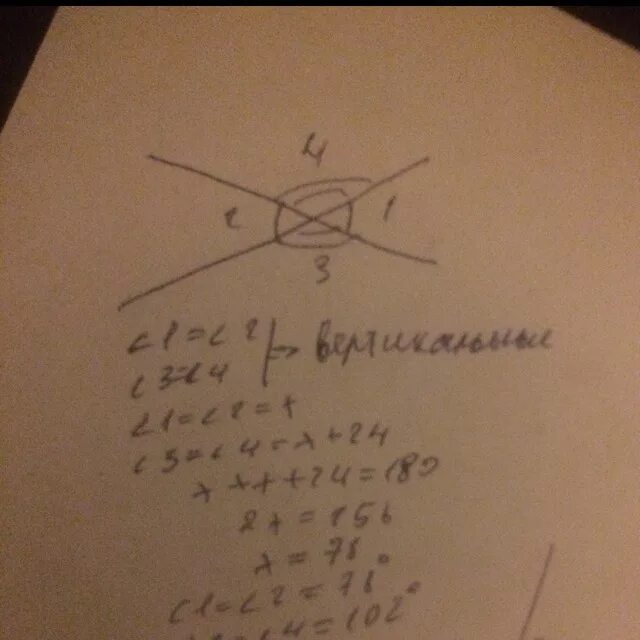 4
2 1
3
∠1=∠2
∠3=∠4 → вертикальные
∠1=∠2=x
∠3=∠4=x+24
x+x+24=180
2x=156
x=78°
∠1=∠2=78°
∠3=∠4=102°